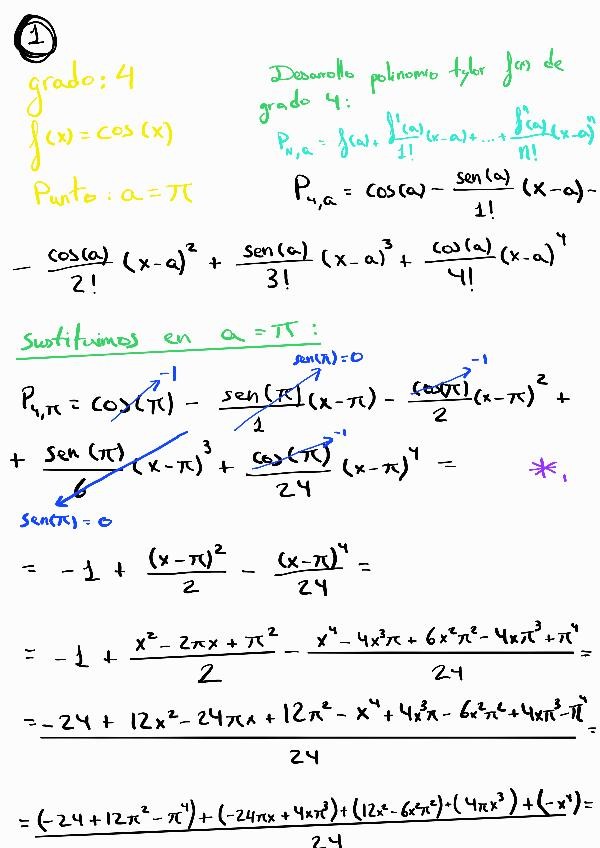 1
grado: 4
f(x) = cos(x)
Punto: a = π
Desarrollo polinomio tylor f(x) de
grado 4:
P_{n,a} = f(a) + \frac{f'(a)}{1!}(x-a) + ... + \frac{f^n(a)}{n!}(x-a)^n
P_{4,a} = cos(a) - \frac{sen(a)}{1!}(x-a) -
- \frac{cos(a)}{2!}(x-a)^2 + \frac{sen(a)}{3!}(x-a)^3 + \frac{cos(a)}{4!}(x-a)^4
sustituimos en a = π:
-1 sen(π)=0 -1
P_{4,π} = cos(π) - \frac{sen(π)}{1}(x-π) - \frac{cos(π)}{2}(x-π)^2 +
+ \frac{sen(π)}{6}(x-π)^3 + \frac{cos(π)}{24}(x-π)^4 = *
-1
sen(π) = 0
= -1 + \frac{(x-π)^2}{2} - \frac{(x-π)^4}{24} =
= -1 + \frac{x^2 - 2πx + π^2}{2} - \frac{x^4 - 4x^3π + 6x^2π^2 - 4xπ^3 + π^4}{24} =
= \frac{-24 + 12x^2 - 24πx + 12π^2 - x^4 + 4x^3π - 6x^2π^2 + 4xπ^3 - π^4}{24} =
= \frac{(-24 + 12π^2 - π^4) + (-24πx + 4xπ^3) + (12x^2 - 6x^2π^2) + (4πx^3) + (-x^4)}{24} =